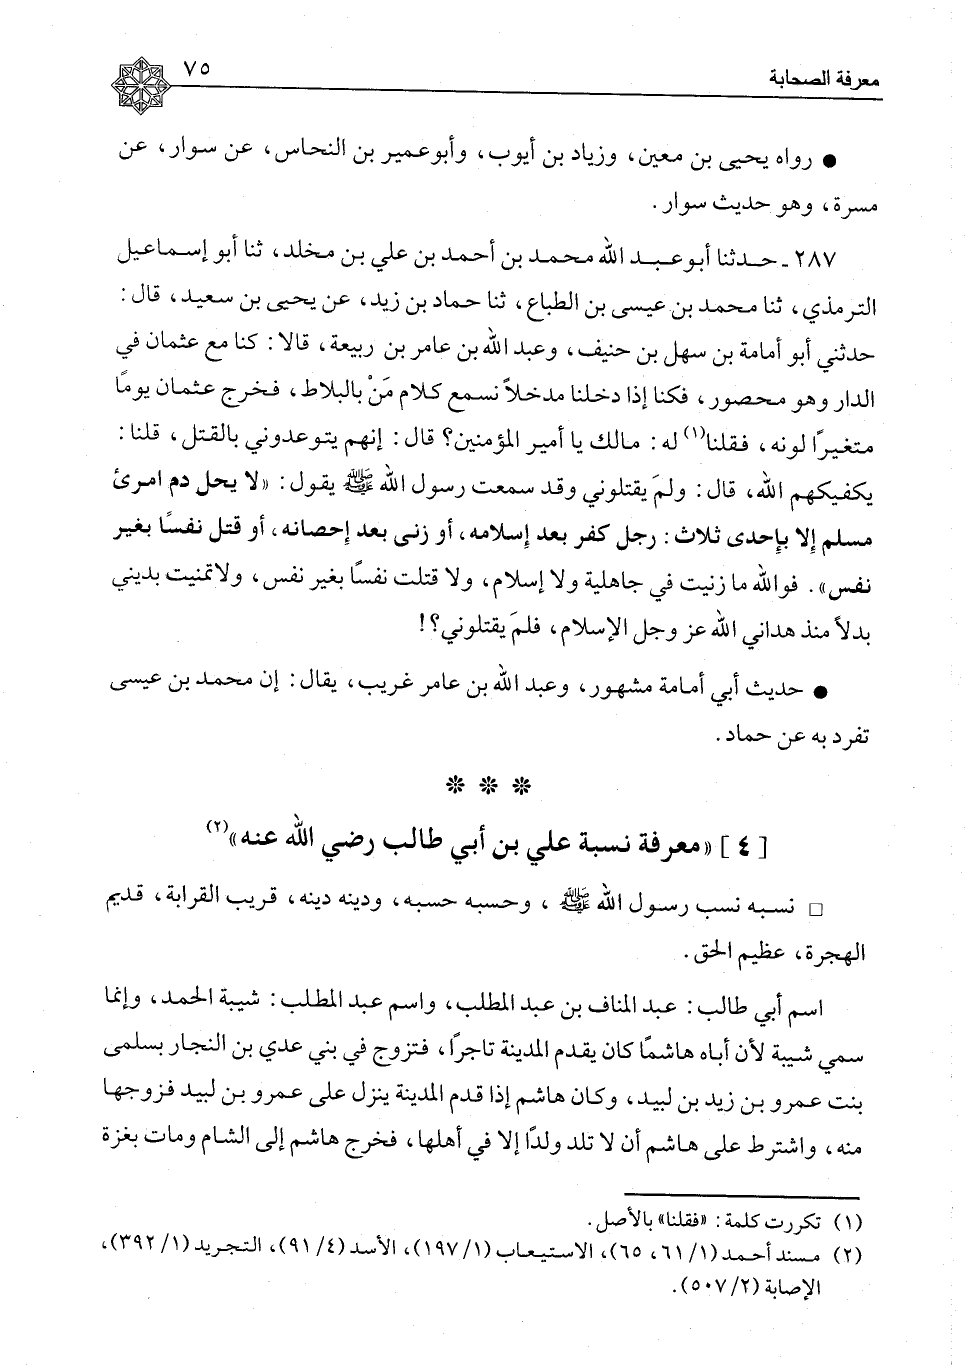 معرفة الصحابة ٧٥
● رواه يحيى بن معين، وزياد بن أيوب، وأبوعمير بن النحاس، عن سوار، عن
مسرة، وهو حديث سوار.
٢٨٧ ـ حدثنا أبو عبد الله محمد بن أحمد بن علي بن مخلد، ثنا أبو إسماعيل
الترمذي، ثنا محمد بن عيسى بن الطباع، ثنا حماد بن زيد، عن يحيى بن سعيد، قال:
حدثني أبو أمامة بن سهل بن حنيف، وعبد الله بن عامر بن ربيعة، قالا: كنا مع عثمان في
الدار وهو محصور، فكنا إذا دخلنا مدخلاً نسمع كلام مَنْ بالبلاط، فخرج عثمان يومًا
متغيرًا لونه، فقلنا(١) له: مالك يا أمير المؤمنين؟ قال: إنهم يتوعدوني بالقتل، قلنا:
يكفيكهم الله، قال: ولمَ يقتلوني وقد سمعت رسول الله ﷺ يقول: «لا يحل دم امرئ
مسلم إلا بإحدى ثلاث: رجل كفر بعد إسلامه، أو زنى بعد إحصانه، أو قتل نفسًا بغير
نفس». فوالله ما زنيت في جاهلية ولا إسلام، ولا قتلت نفسًا بغير نفس، ولاتمنيت بديني
بدلاً منذ هداني الله عز وجل الإسلام، فلمَ يقتلوني؟!
● حديث أبي أمامة مشهور، وعبد الله بن عامر غريب، يقال: إن محمد بن عيسى
تفرد به عن حماد.
❊ ❊ ❊
[ ٤ ] «معرفة نسبة علي بن أبي طالب رضي الله عنه»(٢)
□ نسبه نسب رسول الله ﷺ ، وحسبه حسبه، ودينه دينه، قريب القرابة، قديم
الهجرة، عظيم الحق.
اسم أبي طالب: عبد المناف بن عبد المطلب، واسم عبد المطلب: شيبة الحمد، وإنما
سمي شيبة لأن أباه هاشمًا كان يقدم المدينة تاجرًا، فتزوج في بني عدي بن النجار بسلمى
بنت عمرو بن زيد بن لبيد، وكان هاشم إذا قدم المدينة ينزل على عمرو بن لبيد فزوجها
منه، واشترط على هاشم أن لا تلد ولدًا إلا في أهلها، فخرج هاشم إلى الشام ومات بغزة
(١) تكررت كلمة: «فقلنا» بالأصل.
(٢) مسند أحمد (١/ ٦١، ٦٥)، الاستيعاب (١/ ١٩٧)، الأسد (٤/ ٩١)، التجريد (١/ ٣٩٢)،
الإصابة (٢/ ٥٠٧).